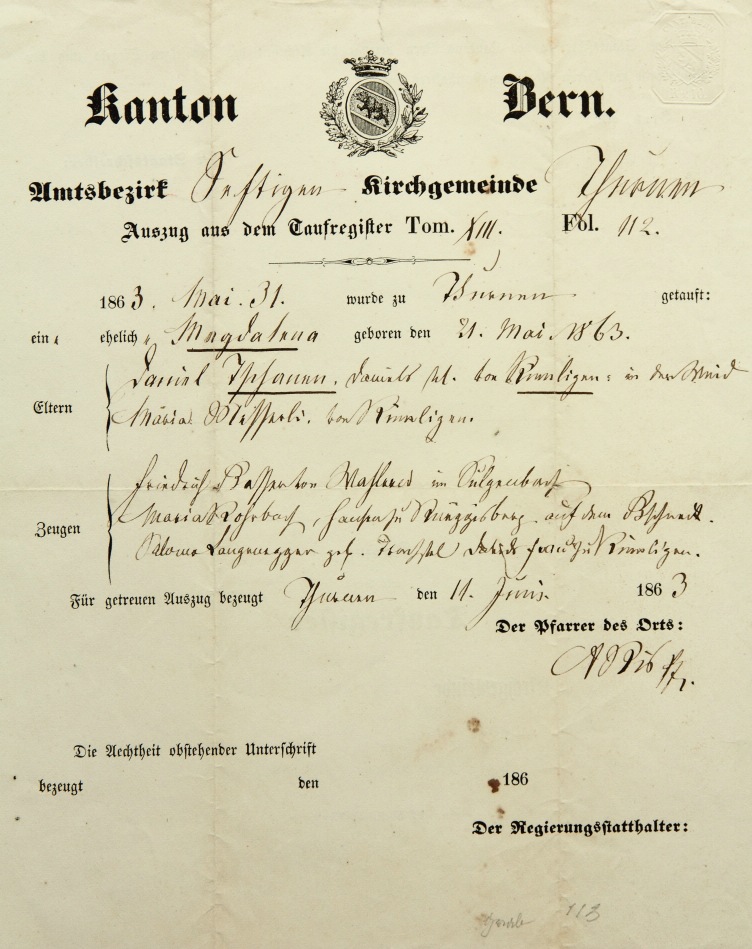 Kanton Bern.
Amtsbezirk Seftigen Kirchgemeinde Thurnen
Auszug aus dem Taufregister Tom. XIII. Fol. 112.
1863. Mai. 31. wurde zu Thurnen getauft:
ein ehelich Magdalena geboren den 21. Mai. 1863.
Eltern
Daniel Tschanen, Daniels sel. von Rümligen: in der Weid
Maria Messerli. von Rümligen.
Zeugen
Friedrich von Wahleren im Sulgenbach
Maria Rohrbach, zu Rüeggisberg auf dem
Salome Langenegger geb. Trachsel zu Rümligen.
Für getreuen Auszug bezeugt Thurnen den 11. Juni. 1863
Der Pfarrer des Orts:
Die Aechtheit obstehender Unterschrift
bezeugt den 186
Der Regierungsstatthalter:
113